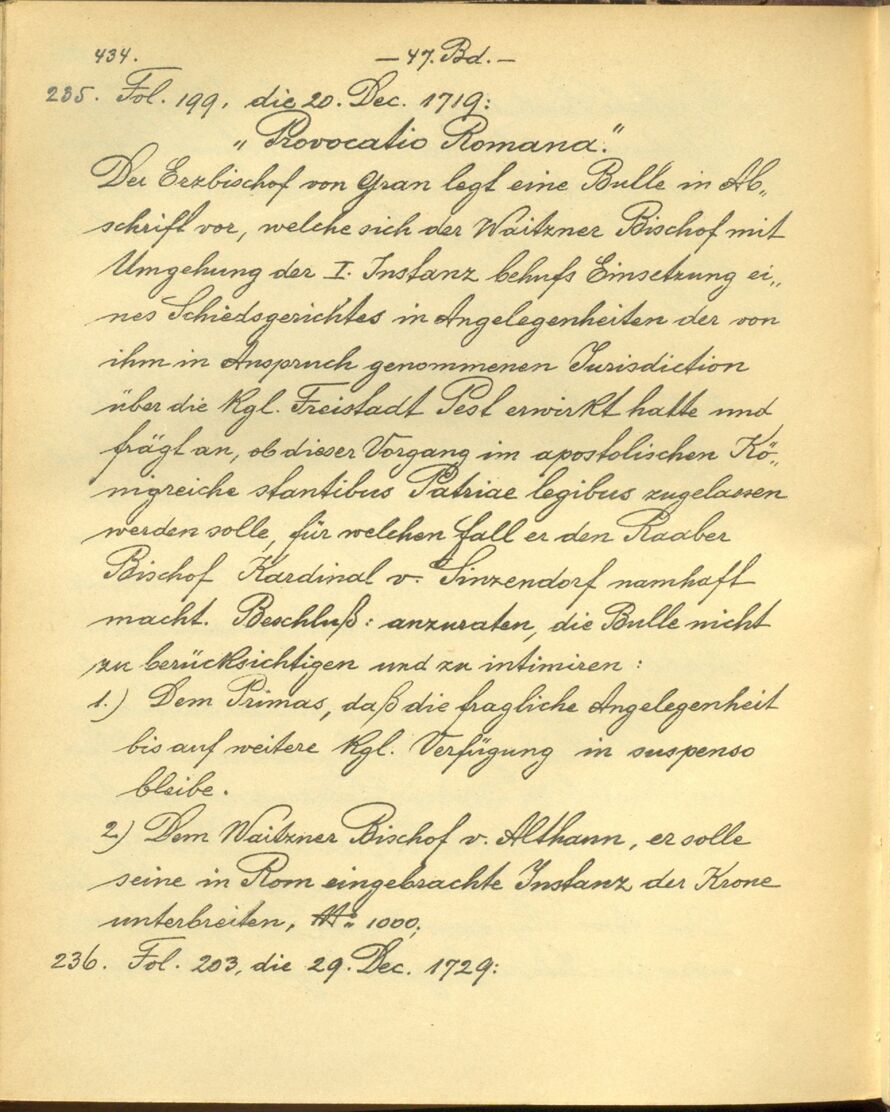 434.
— 47. Bd. —
235. Fol. 199, die 20. Dec. 1719:
„Provocatio Romana."
Der Erzbischof von Gran legt eine Bulle in Ab„
schrift vor, welche sich der Waitzner Bischof mit
Umgehung der I. Instanz behufs Einsetzung ei„
nes Schiedsgerichtes in Angelegenheiten der von
ihm in Anspruch genommenen Jurisdiction
über die Kgl. Freistadt Pest erwirkt hatte und
frägt an, ob dieser Vorgang im apostolischen Kö„
nigreiche stantibus Patriae legibus zugelassen
werden solle, für welchen Fall er den Raaber
Bischof Kardinal v. Sinzendorf namhaft
macht. Beschluß: anzuraten, die Bulle nicht
zu berücksichtigen und zu intimiren:
1.) Dem Primas, daß die fragliche Angelegenheit
bis auf weitere Kgl. Verfügung in suspenso
bleibe.
2.) Dem Waitzner Bischof v. Althann, er solle
seine in Rom eingebrachte Instanz der Krone
unterbreiten, 1000;
236. Fol. 203, die 29. Dec. 1729: